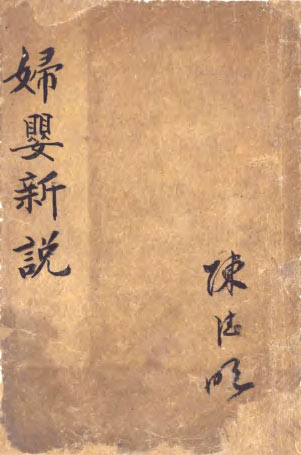 婦嬰新說
陳德明